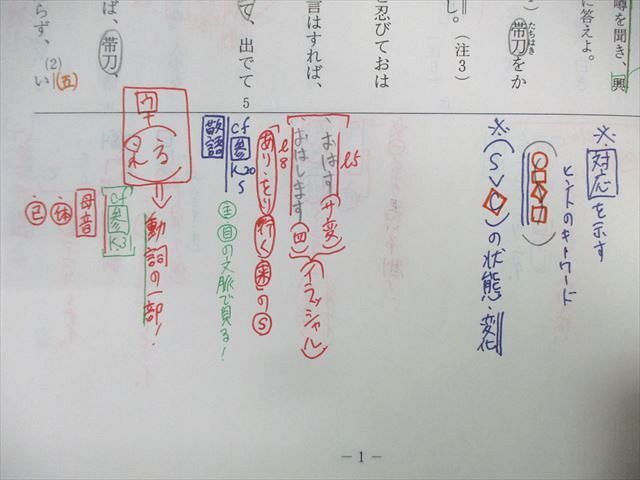 噂を聞き、興
に答えよ。
）帯刀をか
たちはき
し。（注3）
と忍びておは
言はすれば、
て、出でて
5
ば、帯刀、
らず、
(2)
い（五）
※対応を示す
ヒントのキーワード
※（SVC）の状態・変化
l5
、おはす（サ変）
、おはします（四）
（イラッシャル）
l8
あり・をり 行く 来 のS
cf 参 K20
敬語
S
主 目の文脈で見る！
る
れ
⇒動詞の一部！
cf 参 K31
母音
・体
・已
－1－